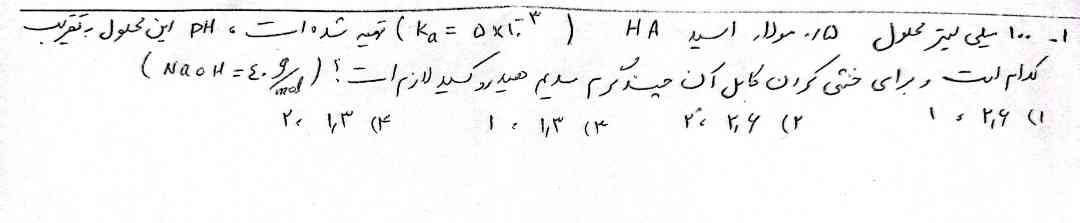 ۱- ۱۰۰ میلی لیتر محلول ۰/۵ مولار اسید HA (Ka = ۵×۱۰⁻³) تهیه شده است، PH این محلول به تقریب
کدام است و برای خنثی کردن کامل آن چند گرم سدیم هیدروکسید لازم است؟ (NaOH = ۴۰ g/mol)
۱) ۲٫۶ ، ۱ ۲) ۲٫۶ ، ۲ ۳) ۱٫۳ ، ۱ ۴) ۱٫۳ ، ۲